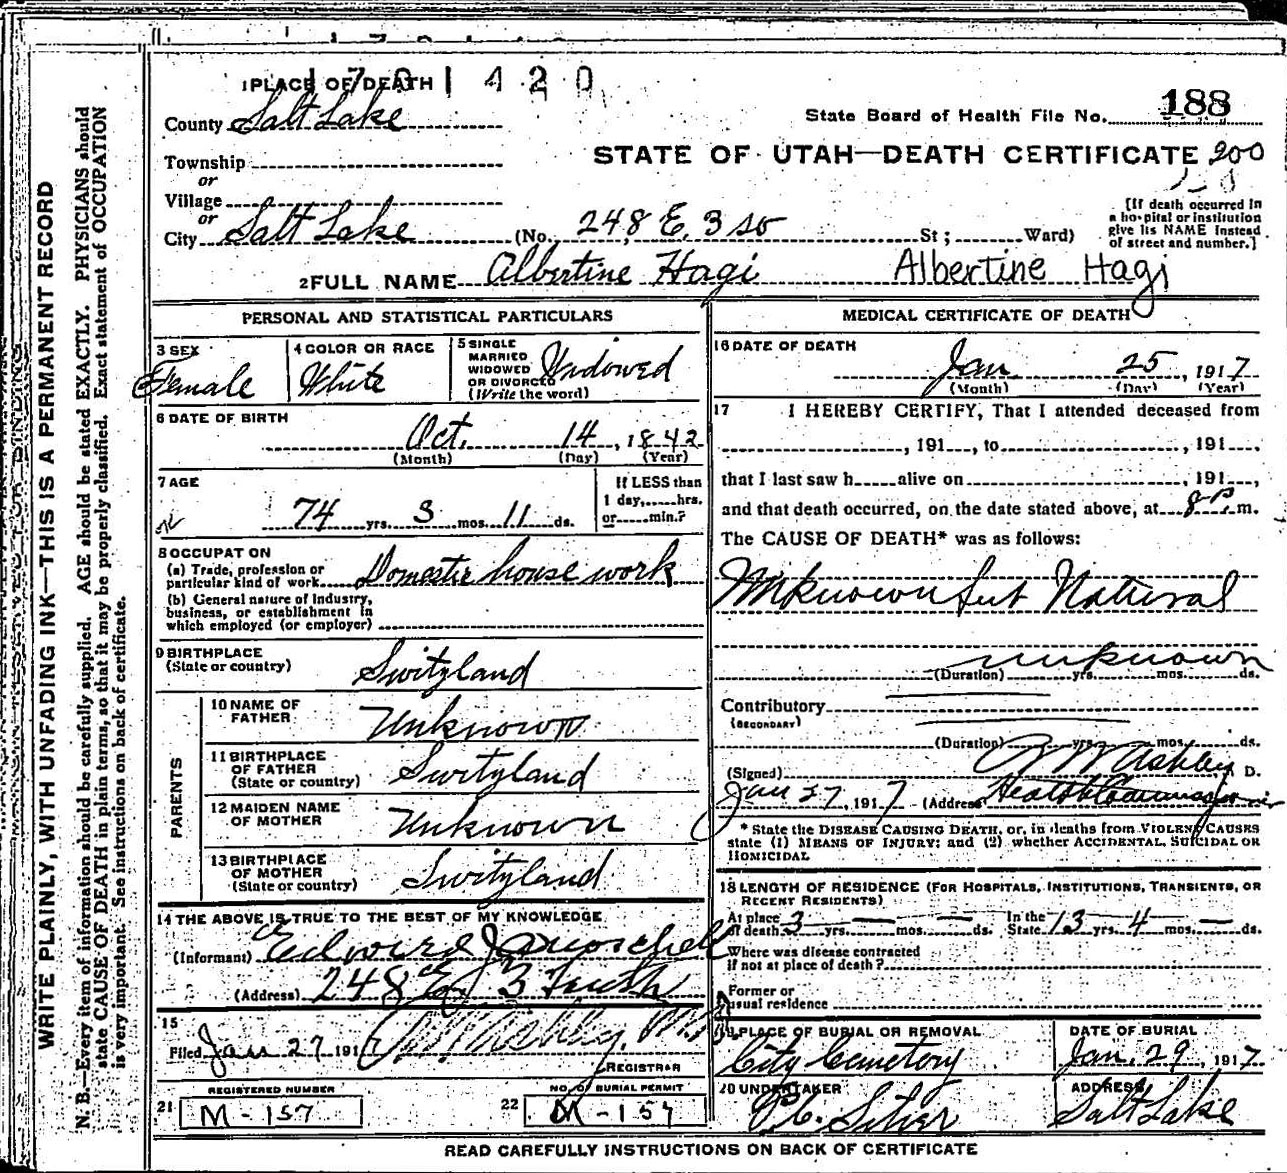 1 7 0 1 4 2 0
1 PLACE OF DEATH
County Salt Lake
State Board of Health File No. 188
Township
or
STATE OF UTAH—DEATH CERTIFICATE 200
Village
or
City Salt Lake (No. 248 E. 3 so St ; Ward)
[If death occurred in
a hospital or institution
give its NAME instead
of street and number.]
2 FULL NAME Albertine Hagi Albertine Hagi
PERSONAL AND STATISTICAL PARTICULARS
3 SEX
Female
4 COLOR OR RACE
White
5 SINGLE
MARRIED
WIDOWED
OR DIVORCED
(Write the word)
Widowed
6 DATE OF BIRTH
Oct. 14, 1842
(Month) (Day) (Year)
7 AGE
74 yrs. 3 mos. 11 ds.
If LESS than
1 day, hrs.
or min.?
8 OCCUPAT ON
(a) Trade, profession or
particular kind of work Domestic house work
(b) General nature of industry,
business, or establishment in
which employed (or employer)
9 BIRTHPLACE
(State or country) Switzland
PARENTS
10 NAME OF
FATHER Unknown
11 BIRTHPLACE
OF FATHER
(State or country) Switzland
12 MAIDEN NAME
OF MOTHER Unknown
13 BIRTHPLACE
OF MOTHER
(State or country) Switzland
14 THE ABOVE IS TRUE TO THE BEST OF MY KNOWLEDGE
(Informant) Edward
(Address) 248 E 3 South
15
Filed Jan 27 1917 Ashby, M.D.
REGISTRAR
REGISTERED NUMBER
21 M-157
NO. OF BURIAL PERMIT
22 M-157
MEDICAL CERTIFICATE OF DEATH
16 DATE OF DEATH
Jan 25, 1917
(Month) (Day) (Year)
17 I HEREBY CERTIFY, That I attended deceased from
, 191 , to , 191 ,
that I last saw h alive on , 191 ,
and that death occurred, on the date stated above, at 8 P. m.
The CAUSE OF DEATH* was as follows:
Unknown but Natural
unknown
(Duration) yrs. mos. ds.
Contributory
(SECONDARY)
(Duration) yrs. mos. ds.
(Signed) Ashby M. D.
Jan 27, 1917 (Address) Health Commissioner
* State the DISEASE CAUSING DEATH, or, in deaths from VIOLENT CAUSES
state (1) MEANS OF INJURY; and (2) whether ACCIDENTAL, SUICIDAL OR
HOMICIDAL
18 LENGTH OF RESIDENCE (FOR HOSPITALS, INSTITUTIONS, TRANSIENTS, OR
RECENT RESIDENTS)
At place
of death 3 yrs. — mos. — ds.
In the
State 13 yrs. 4 mos. — ds.
Where was disease contracted
if not at place of death?
Former or
usual residence
19 PLACE OF BURIAL OR REMOVAL
City Cemetory
DATE OF BURIAL
Jan. 29, 1917.
20 UNDERTAKER
ADDRESS
Salt Lake
READ CAREFULLY INSTRUCTIONS ON BACK OF CERTIFICATE
WRITE PLAINLY, WITH UNFADING INK—THIS IS A PERMANENT RECORD
N. B.—Every item of information should be carefully supplied. AGE should be stated EXACTLY. PHYSICIANS should
state CAUSE OF DEATH in plain terms, so that it may be properly classified. Exact statement of OCCUPATION
is very important. See instructions on back of certificate.